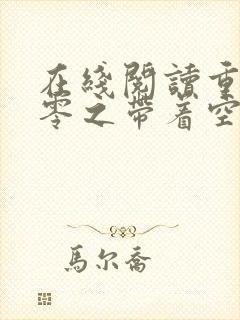 在綫閱讀重
零之帶着空
馬尔喬